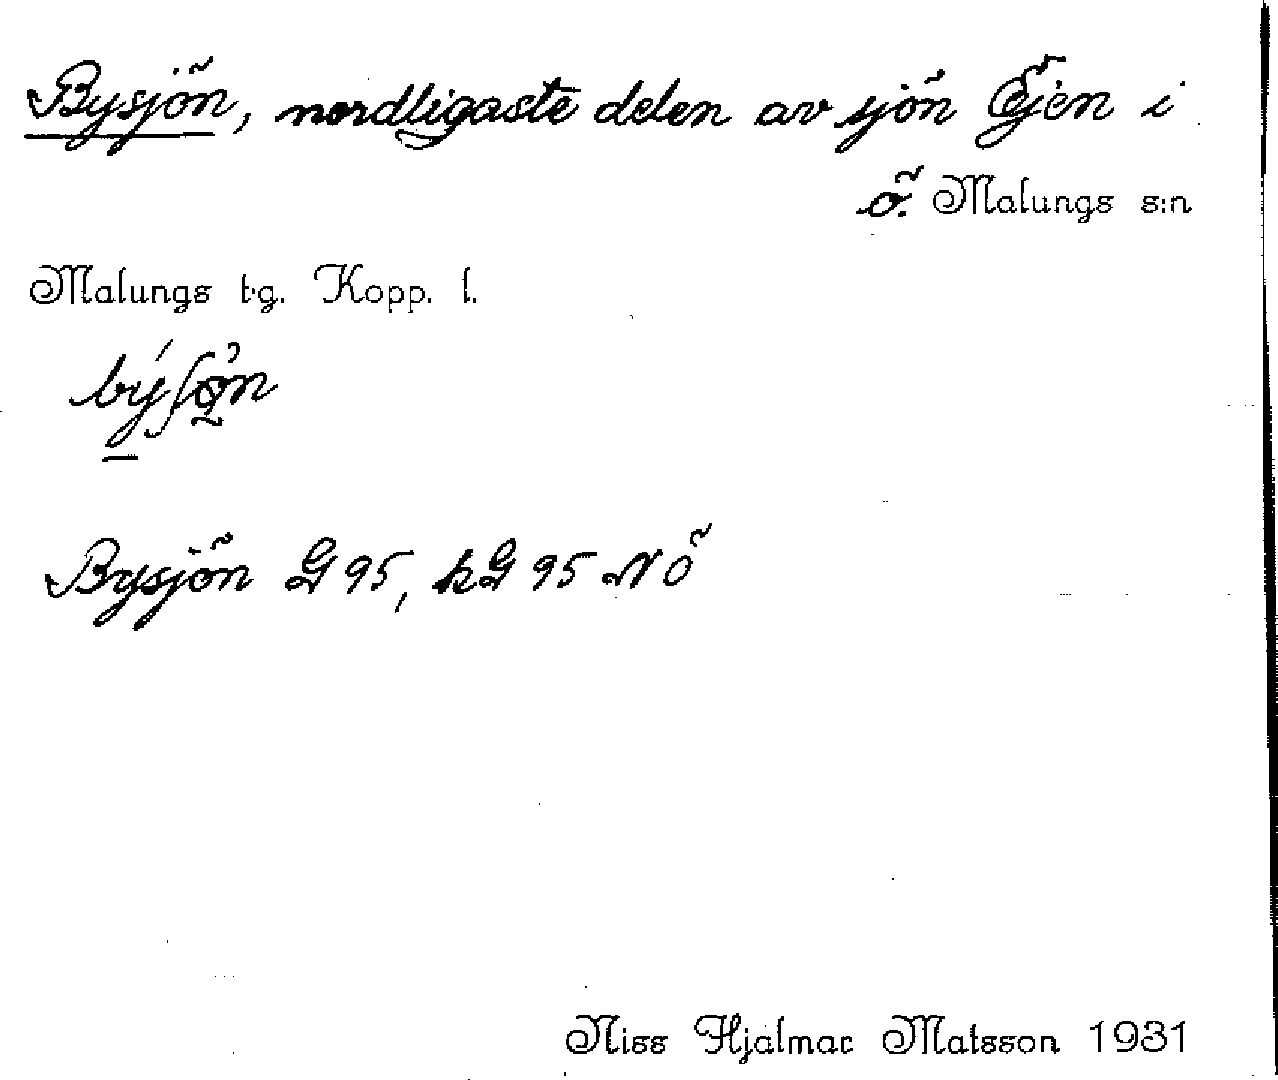 Bysjön, nordligaste delen av sjön Öjen i
ö. Malungs s:n
Malungs tg. Kopp. l.
Bysjön G 95, kG 95 NÖ
Niss Hjalmar Matsson 1931